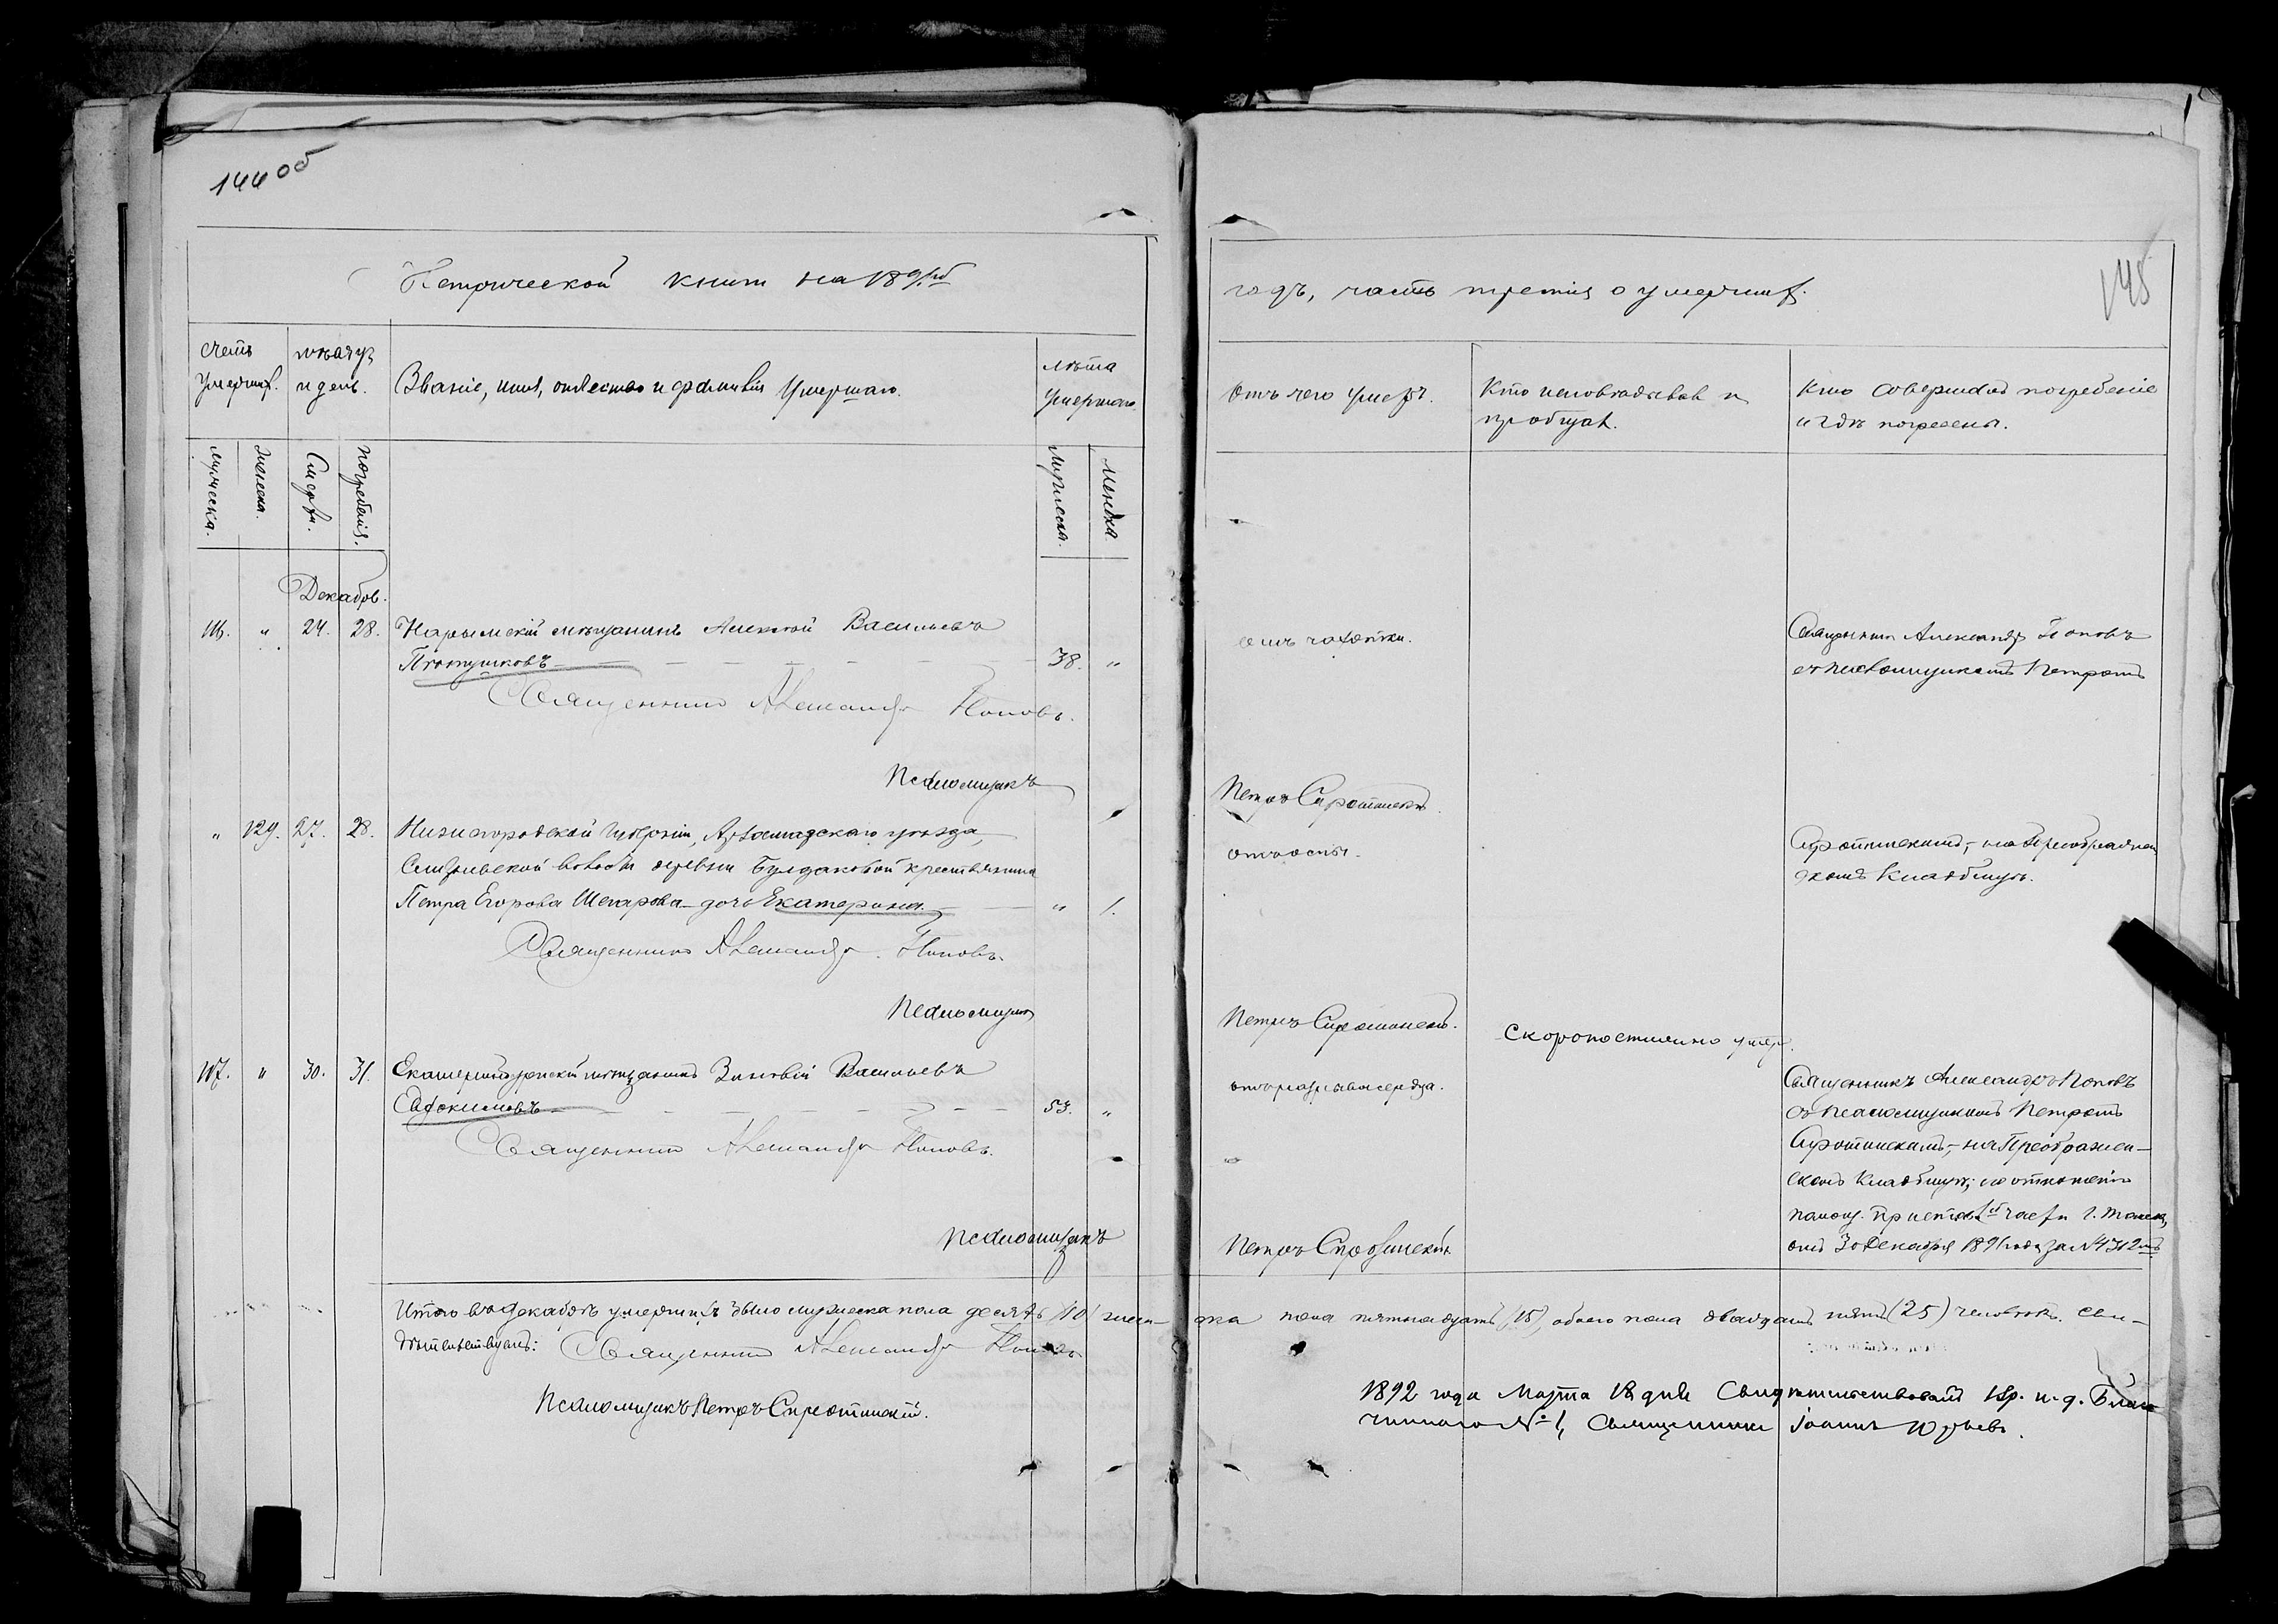 144 об
Метрической книги на 1891й
счетъ умершихъ.
мѣсяцъ и день.
Званіе, имя, отчество и фамилія умершаго.
лѣта умершаго
мужеска.
женска.
Смерти.
погребенія.
мужеска.
женска.
Декабрь.
116. " 24. 28. Нарымскій мѣщанинъ Алексѣй Васильевъ
38. "
Священникъ Александръ Поповъ.
Псаломщикъ
" 129. 27. 28. Нижегородской губерніи, Арзамасскаго уѣзда,
волости деревни Булдаковой крестьянина
Петра Егорова Шепарова дочь Екатерина " 1.
Священникъ Александръ Поповъ.
Псаломщикъ
117. " 30. 31. Екатеринбургскій мѣщанинъ Зиновій Васильевъ
Евдокимовъ 53. "
Священникъ Александръ Поповъ.
Псаломщикъ
Итого въ Декабрѣ умершихъ было мужеска пола десять (10) жен-
дѣтельствуютъ: Священникъ Александръ Поповъ
Псаломщикъ Петръ Сиротинскій.
145
годъ, часть третія о умершихъ.
Отъ чего умеръ.
Кто исповѣдывалъ и
пріобщалъ.
Кто совершалъ погребеніе
и гдѣ погребены.
отъ чахотки.
Священникъ Александръ Поповъ
съ псаломщикомъ Петромъ
Петръ Сиротинскій
отъ оспы.
Сиротинскимъ, на Преображен
скомъ кладбищѣ.
Петръ Сиротинскій.
Скоропостижно умеръ.
отъ разрыва сердца.
Священникъ Александръ Поповъ
съ псаломщикомъ Петромъ
Сиротинскимъ, на Преображен-
скомъ кладбищѣ; по отношенію
помощ. Пристава 1й части г. Томска,
отъ 30 Декабря 1891 года за № 4312мъ
Петръ Сиротинскій
ска пола пятнадцать (15), обоего пола двадцать пять (25) человѣкъ. Сви-
1892 года Марта 18 дня Свидѣтельствовалъ и. д. Благо
чиннаго № 1, Священникъ Іоаннъ Юрьевъ.